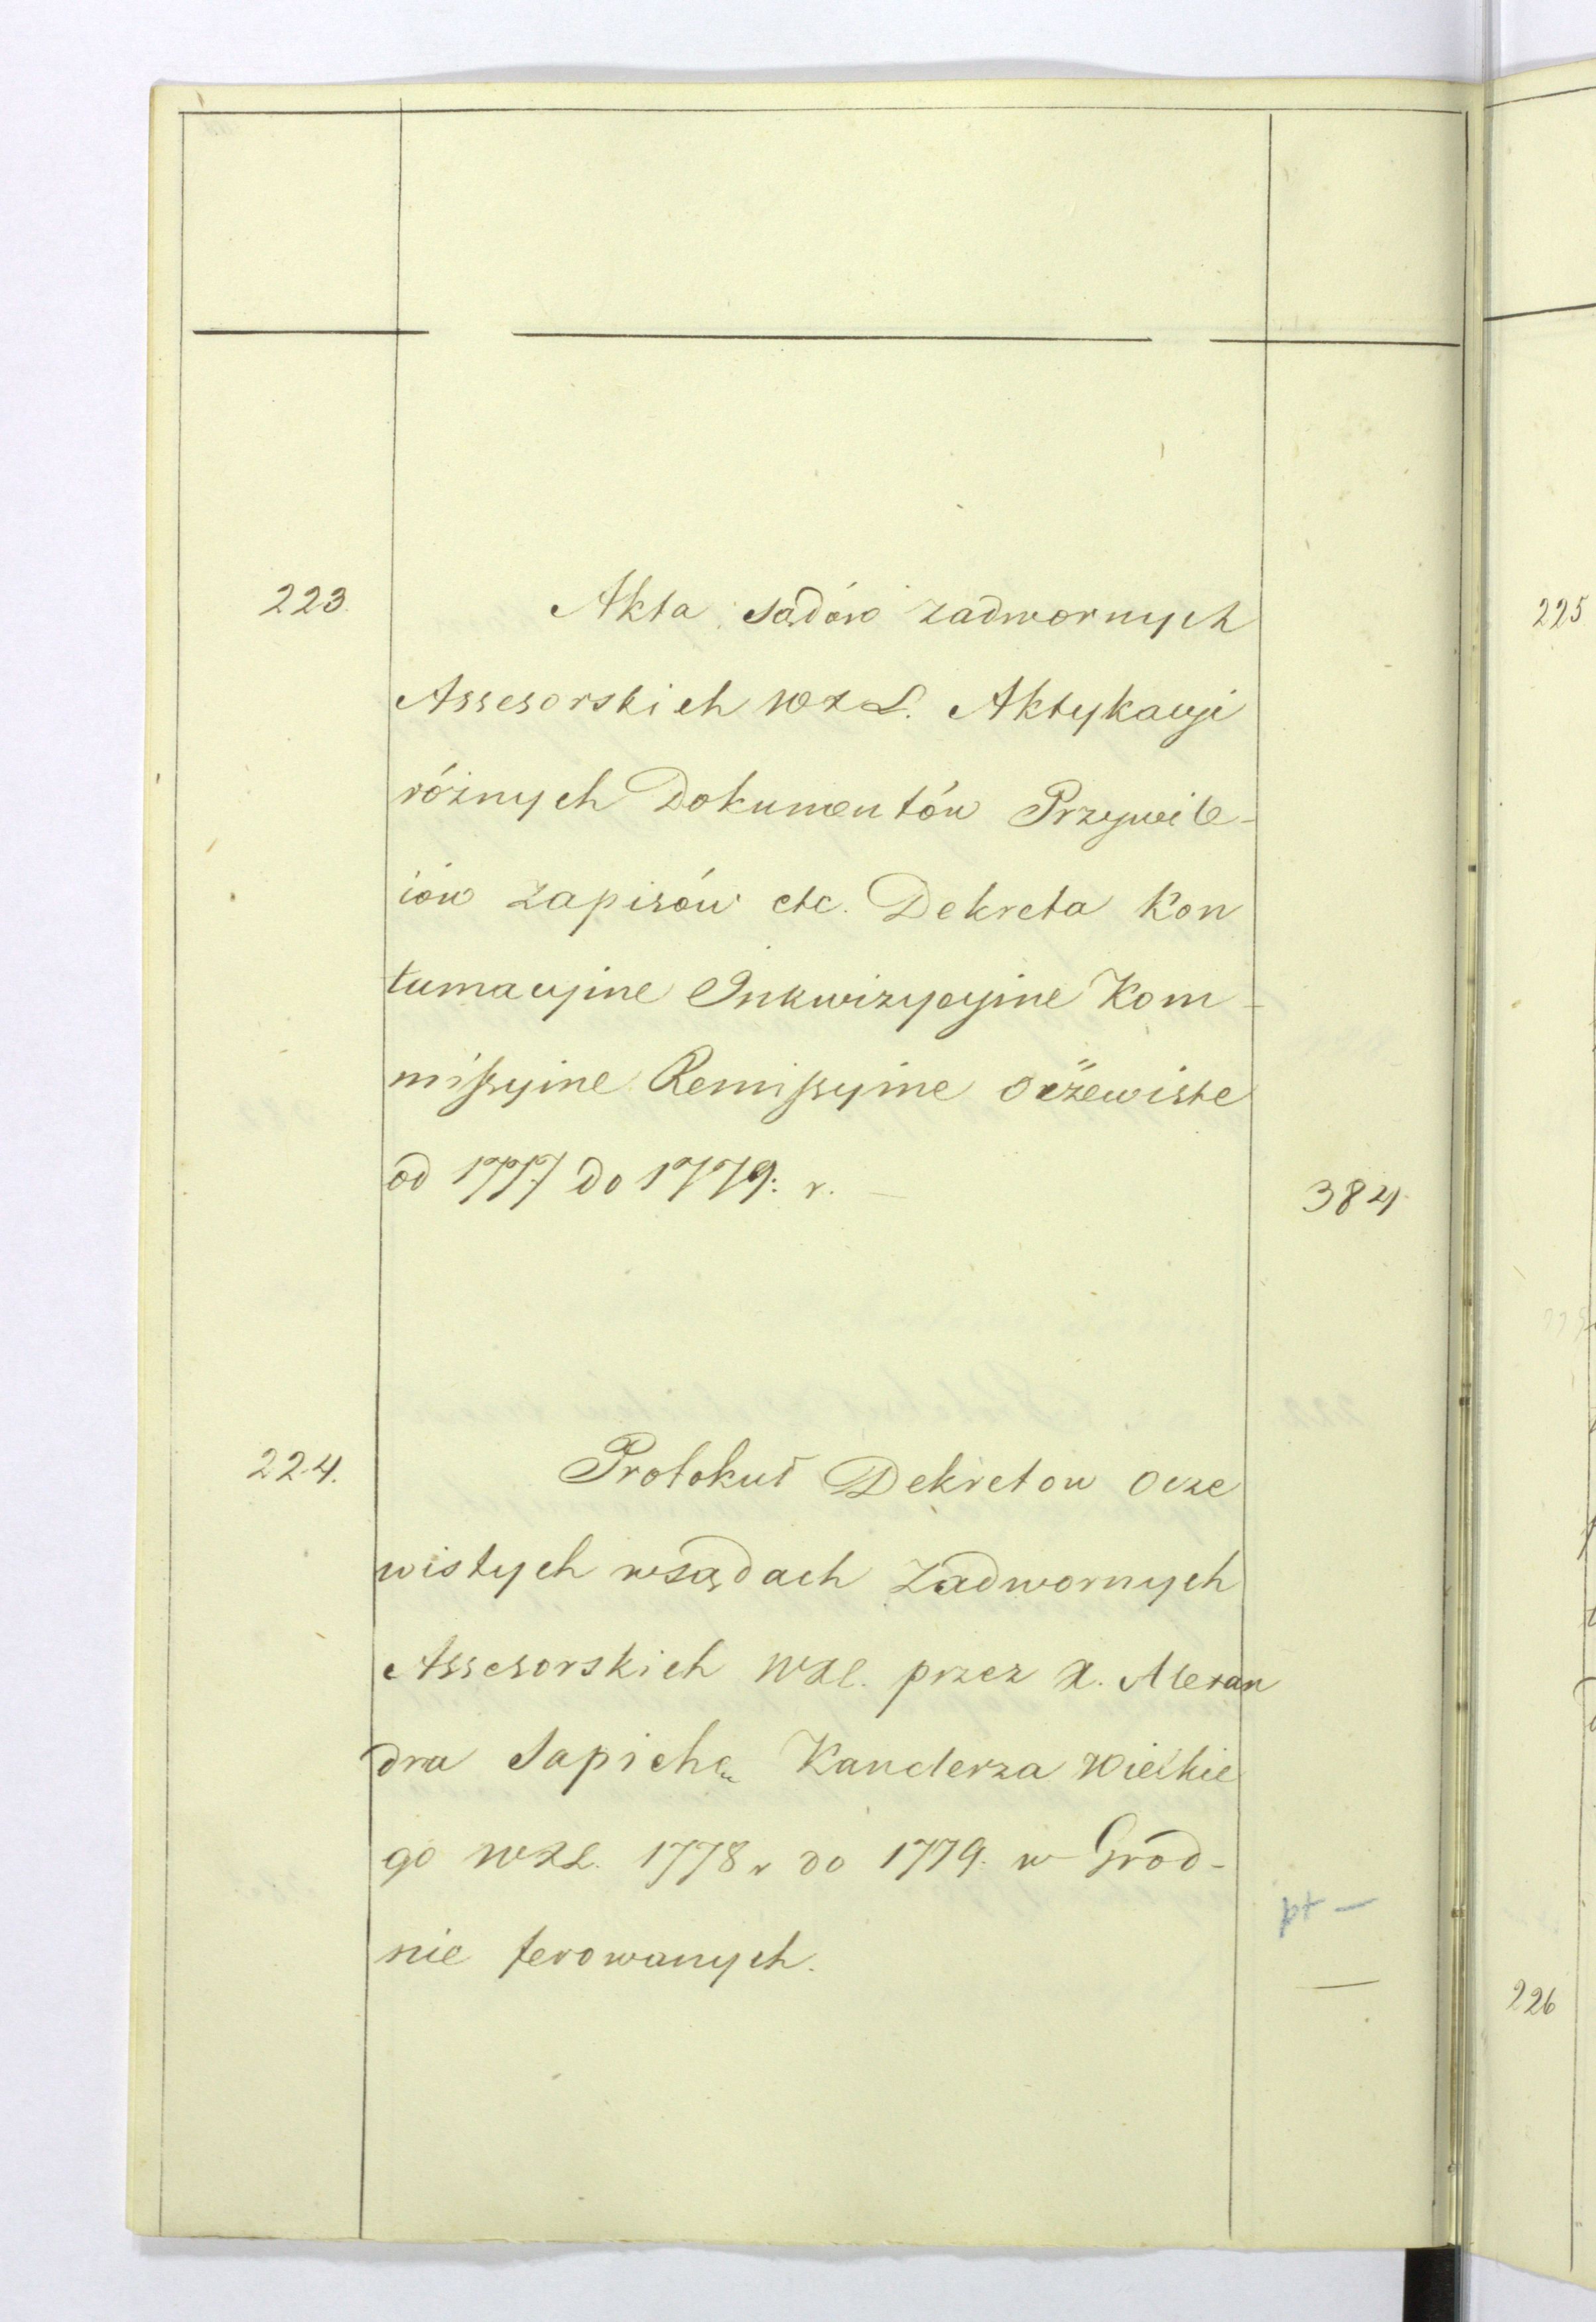 223. Akta sądów zadwornych
Assesorskich WXL. Aktykacyi
różnych Dokumentów Przywile-
iów zapisów etc. Dekreta Kon
tumacyine Inkwizycyine Kom-
missyine Remissyine oczewiste
od 1777 do 1779: r. — 384
224. Protokuł Dekretow Ocze
wistych w sądach Zadwornych
Assesorskich WXL. przez X. Alexan
dra Sapiehę Kanclerza Wielkie
go WXL. 1778 r do 1779. w Grod-
nie ferowanych.
pt —
225
226